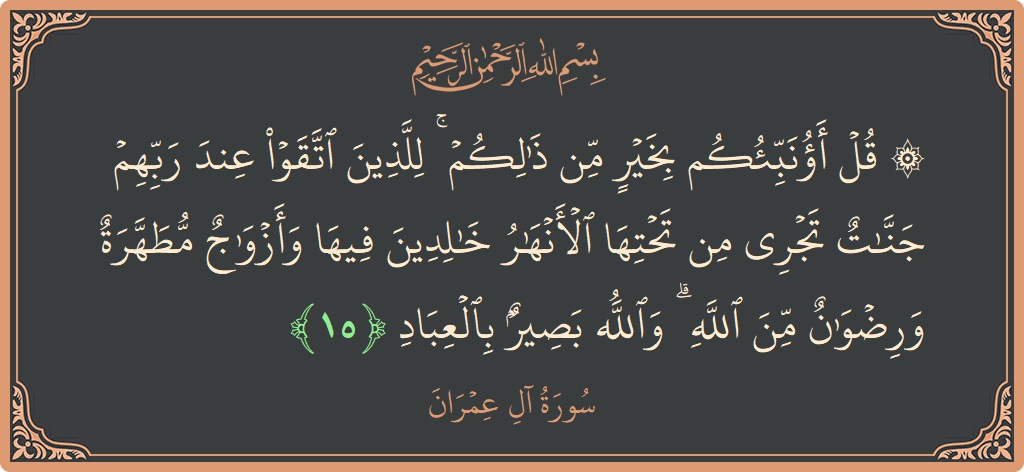 بِسْمِ اللَّهِ الرَّحْمَٰنِ الرَّحِيمِ
۞ قُلْ أَؤُنَبِّئُكُم بِخَيْرٍ مِّن ذَٰلِكُمْ ۚ لِلَّذِينَ ٱتَّقَوْا۟ عِندَ رَبِّهِمْ
جَنَّـٰتٌ تَجْرِى مِن تَحْتِهَا ٱلْأَنْهَـٰرُ خَـٰلِدِينَ فِيهَا وَأَزْوَٰجٌ مُّطَهَّرَةٌ
وَرِضْوَٰنٌ مِّنَ ٱللَّهِ ۗ وَٱللَّهُ بَصِيرٌۢ بِٱلْعِبَادِ ﴿١٥﴾
سُورَةُ آلِ عِمْرَانَ